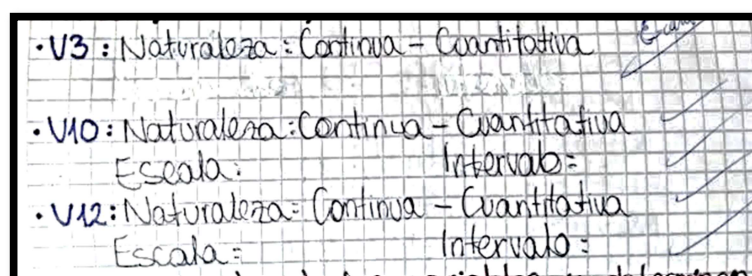 · V3 : Naturaleza : Continua - Cuantitativa
· V10 : Naturaleza : Continua - Cuantitativa
Escala : Intervalo :
· V12 : Naturaleza : Continua - Cuantitativa
Escala : Intervalo :